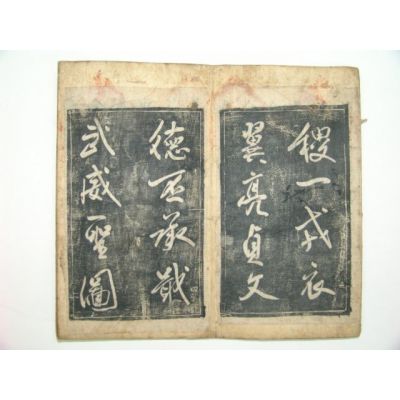 一戎衣
翼亮貞文
德丕承戢
武威聖圖